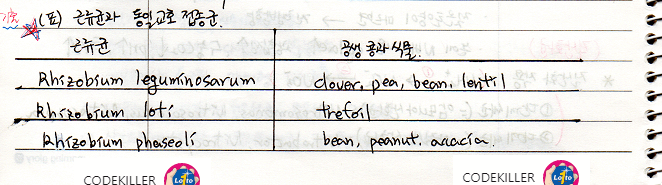 (표) 근류균과 동일 교호 접종군.
근류균 공생 콩과식물.
Rhizobium leguminosarum clover, pea, bean, lentil
Rhizobium loti trefoil
Rhizobium phaseoli bean, peanut, acacia.
CODEKILLER Lotto CODEKILLER Lotto